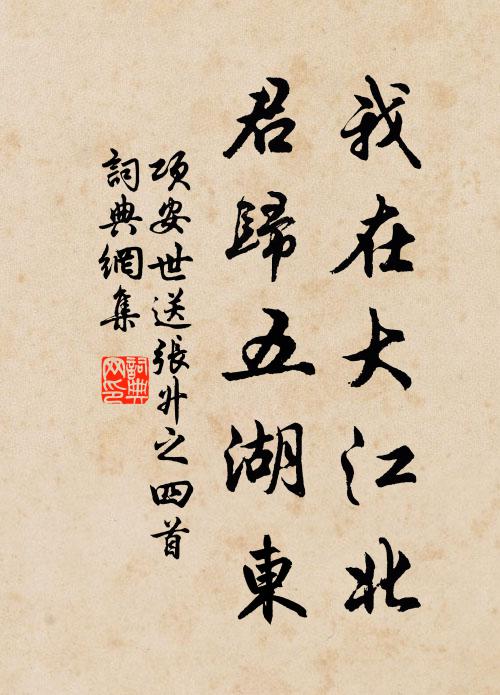 我在大江北
君歸五湖東
項安世送張升之四首
詞典網集
詞典網印